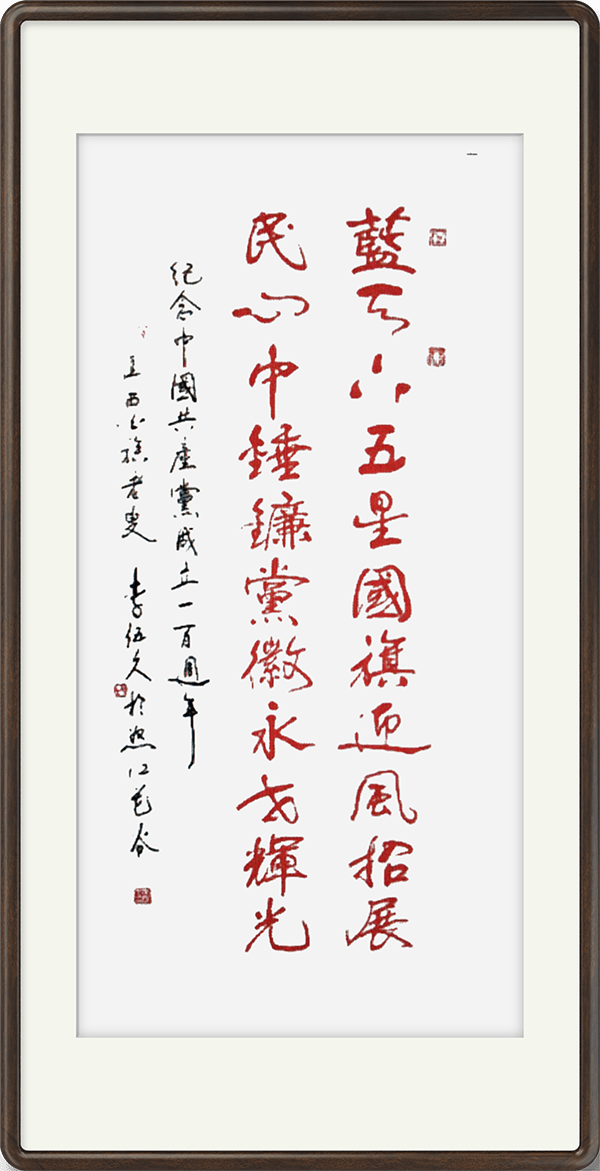 藍天下五星國旗迎風招展
民心中錘鐮黨徽永世輝光
紀念中國共產黨成立一百週年
西 族老叟 李伍久於 江 谷